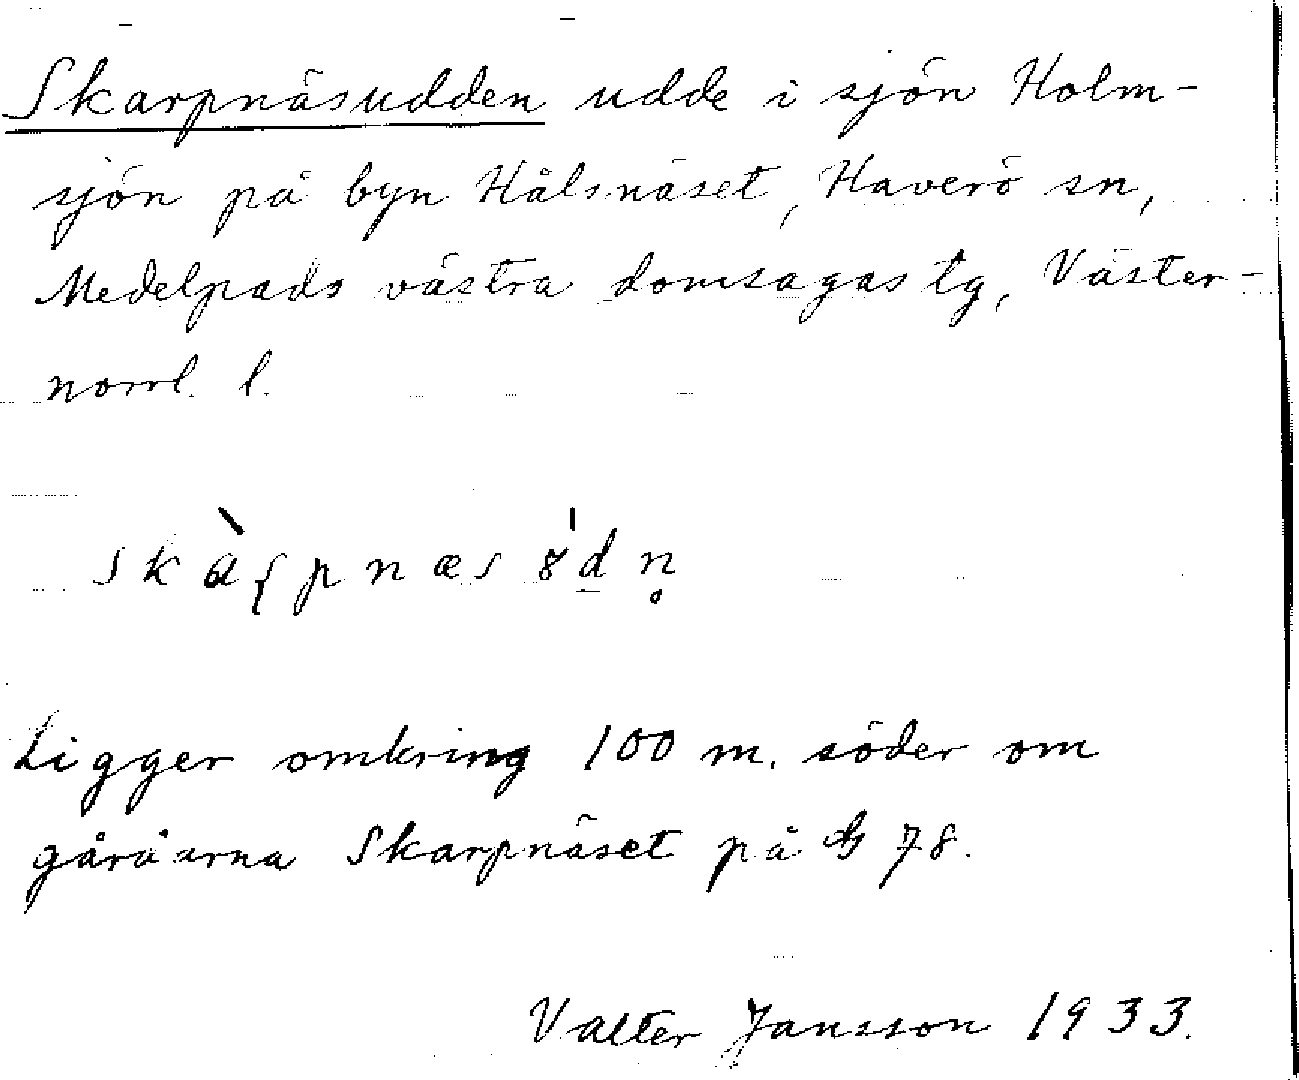 Skarpnäsudden udde i sjön Holm-
sjön på byn Hålsnäset, Haverö sn,
Medelpads västra domsagas tg, Väster-
norrl. l.
Ligger omkring 100 m. söder om
gårdarna Skarpnäset på G 78.
Valter Jansson 1933.